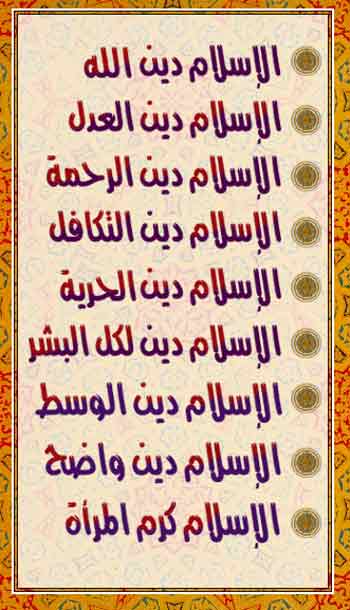 الإسلام دين الله
الإسلام دين العدل
الإسلام دين الرحمة
الإسلام دين التكافل
الإسلام دين الحرية
الإسلام دين لكل البشر
الإسلام دين الوسط
الإسلام دين واضح
الإسلام كرم المرأة